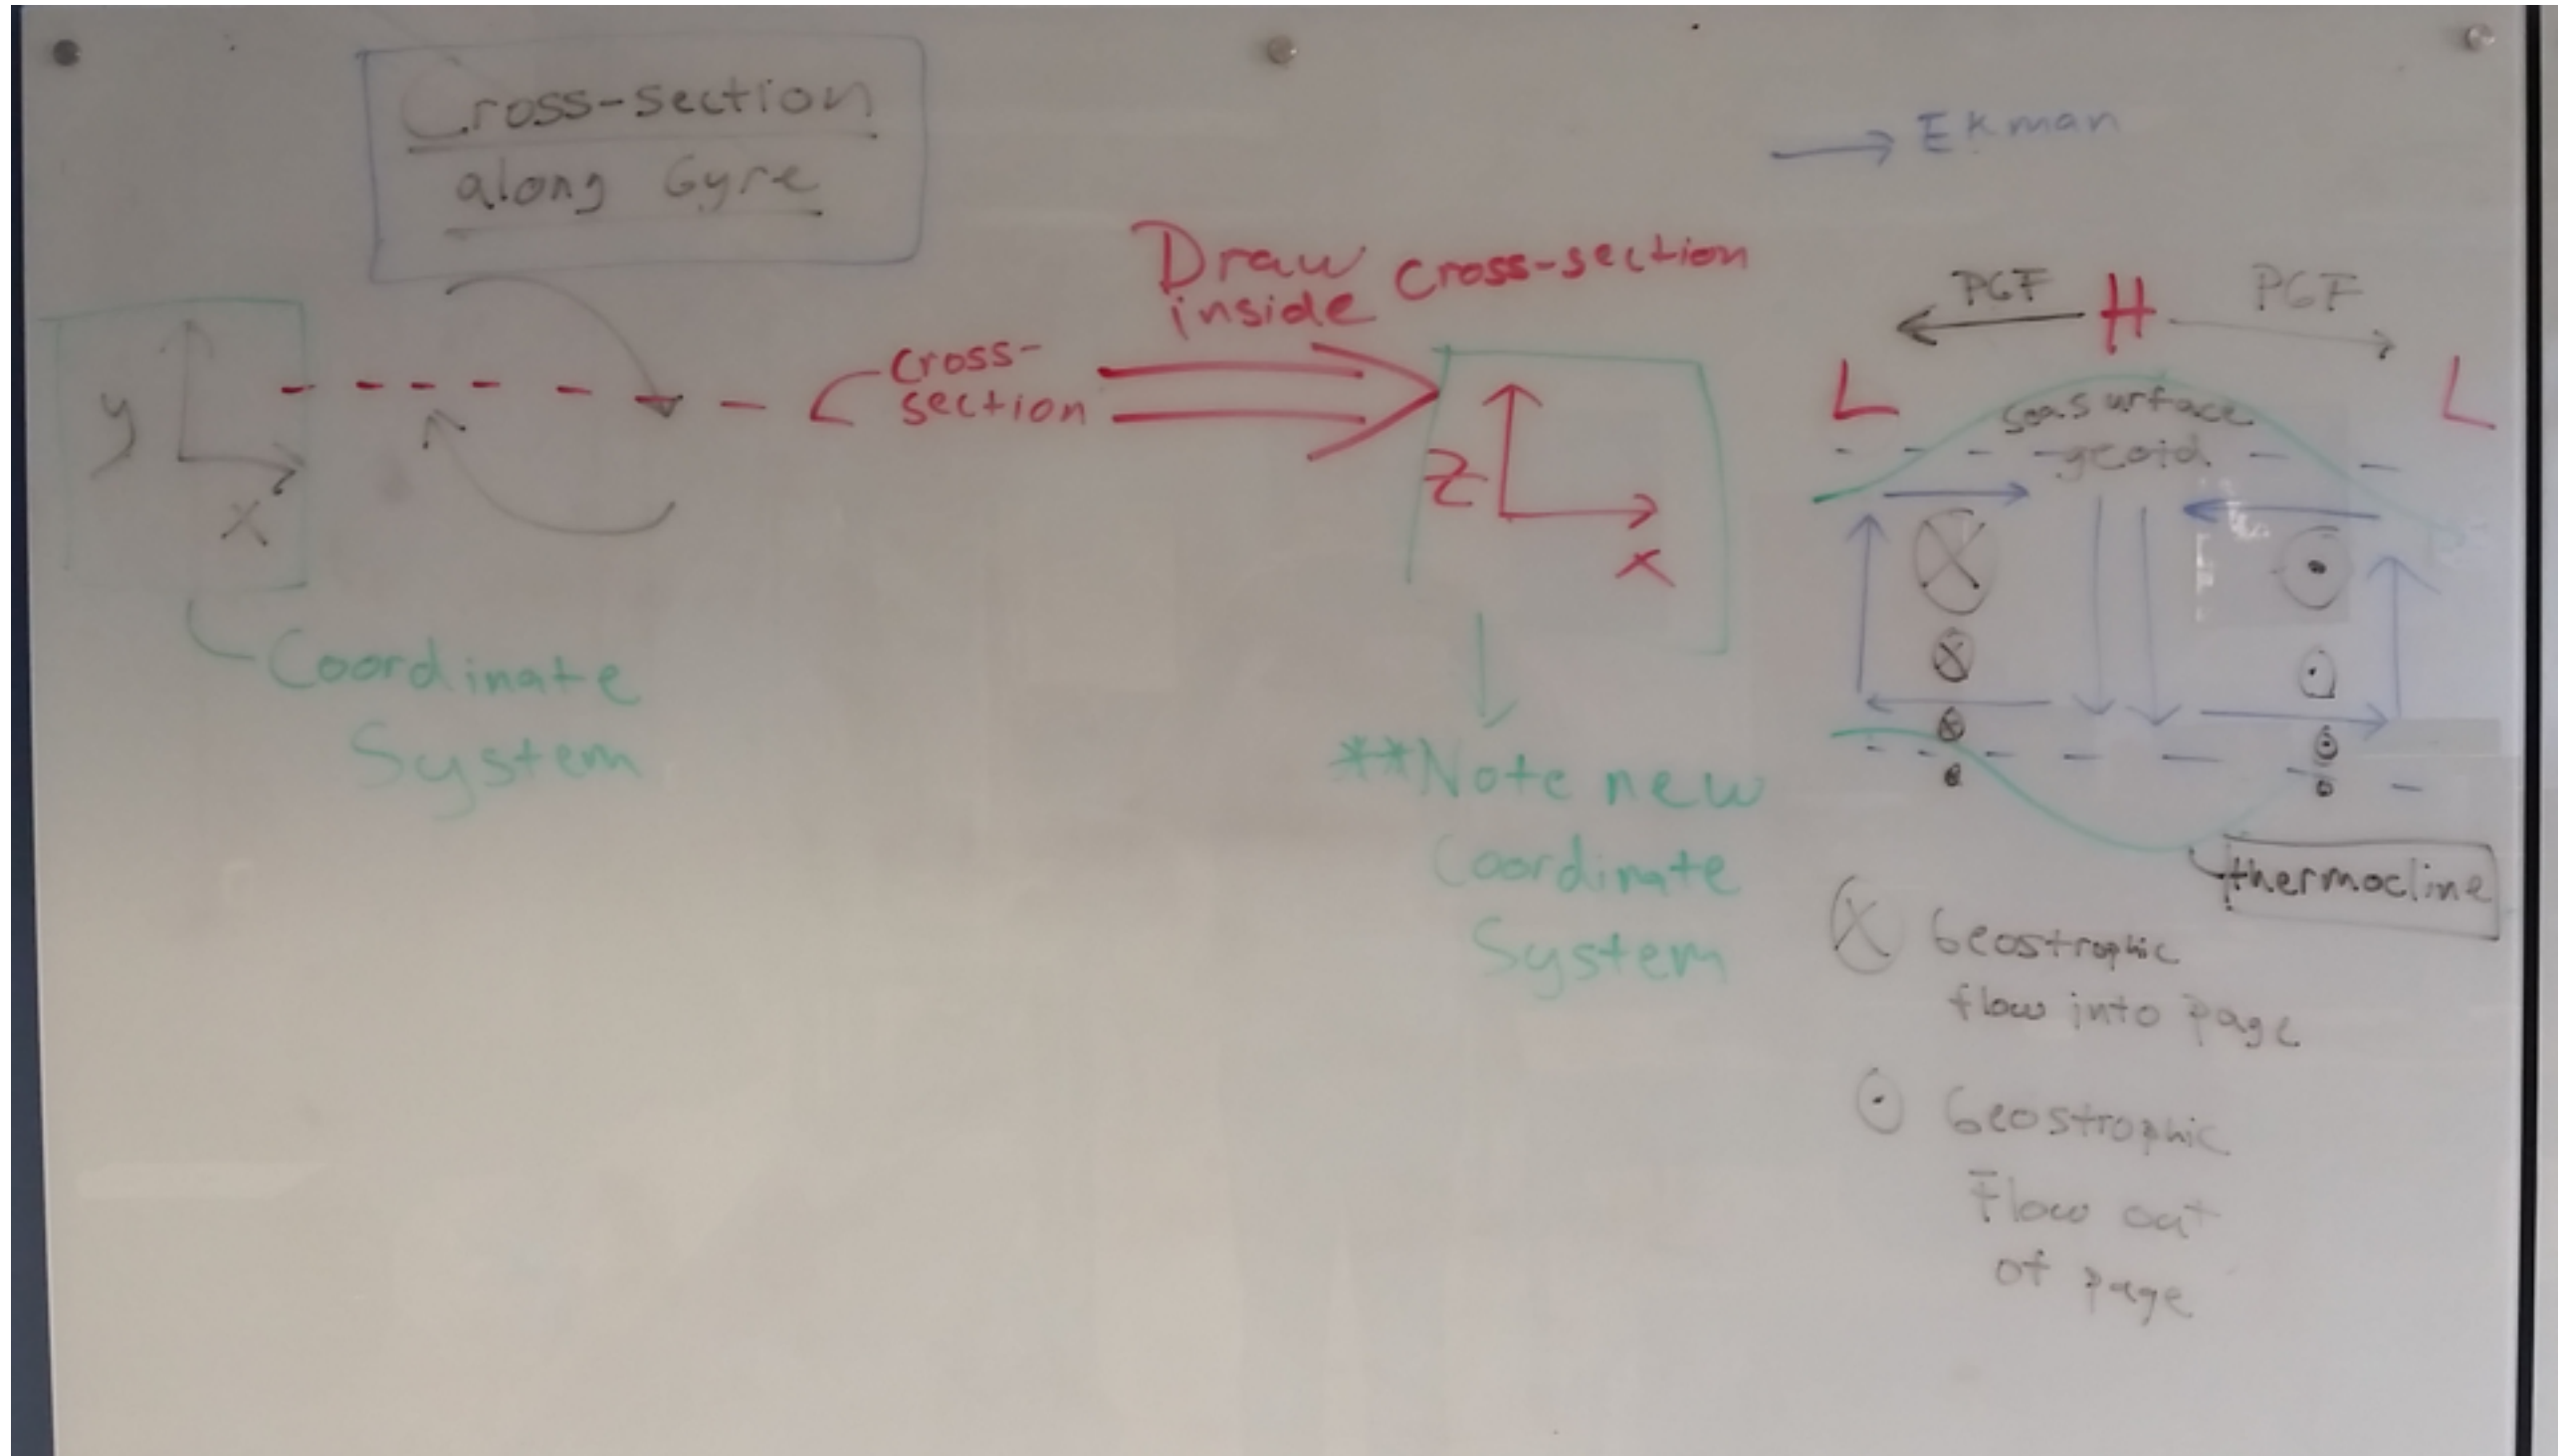 Cross-section
along Gyre
y
x
Coordinate
System
Cross-
section
Draw
inside cross-section
z
x
**Note new
Coordinate
System
Ekman
PGF H PGF
L L
Sea surface
geoid
thermocline
Geostrophic
flow into page
Geostrophic
Flow out
of page